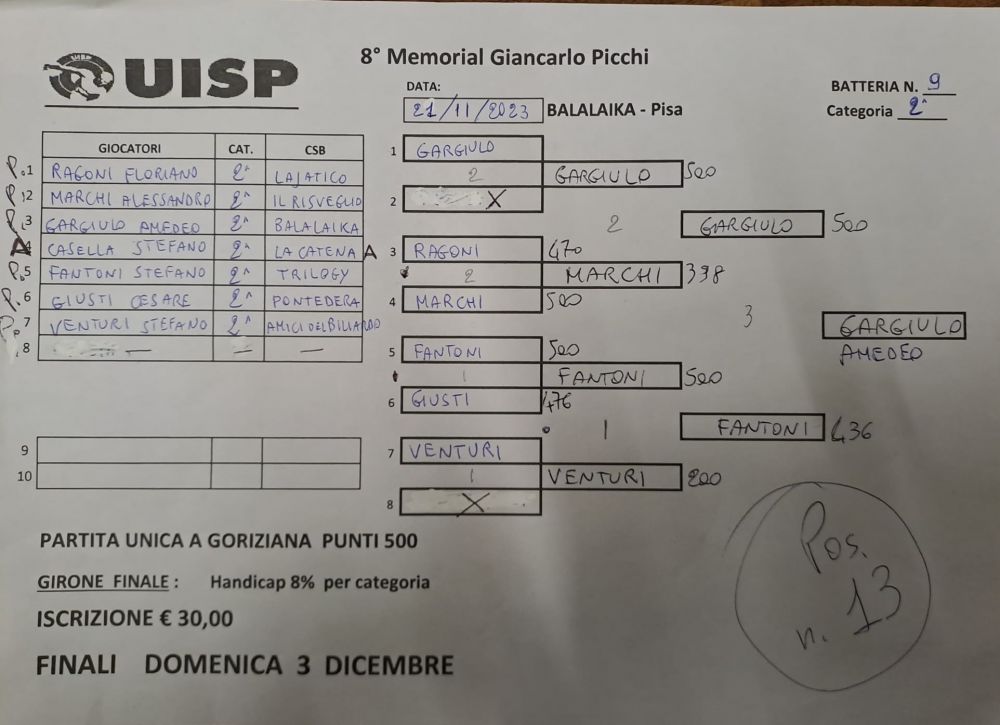 UISP
8° Memorial Giancarlo Picchi
DATA:
21/11/2023 BALALAIKA - Pisa
BATTERIA N. 9
Categoria 2^
GIOCATORI CAT. CSB
P. 1 RAGONI FLORIANO 2^ LAJATICO
P. 2 MARCHI ALESSANDRO 2^ IL RISVEGLIO
P. 3 GARGIULO AMEDEO 2^ BALALAIKA
A 4 CASELLA STEFANO 2^ LA CATENA A
P. 5 FANTONI STEFANO 2^ TRILOGY
P. 6 GIUSTI CESARE 2^ PONTEDERA
P. 7 VENTURI STEFANO 2^ AMICI DEL BILIARDO
8 — — —
9
10
1 GARGIULO
2 GARGIULO 500
2 X
2 GARGIULO 500
3 RAGONI 470
2 MARCHI 398
4 MARCHI 500
3 GARGIULO
AMEDEO
5 FANTONI 500
1 FANTONI 500
6 GIUSTI 476
1 FANTONI 436
7 VENTURI
1 VENTURI 200
8 X
PARTITA UNICA A GORIZIANA PUNTI 500
GIRONE FINALE : Handicap 8% per categoria
ISCRIZIONE € 30,00
FINALI DOMENICA 3 DICEMBRE
Pos.
n. 13